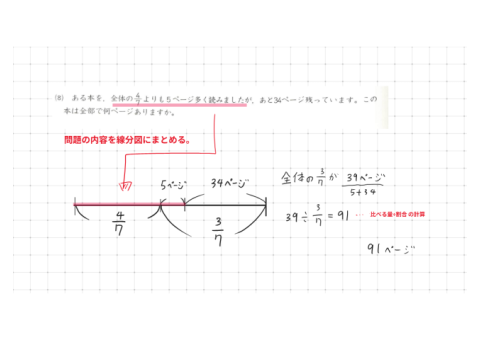 ⑻ ある本を、全体の4/7よりも5ページ多く読みましたが、あと34ページ残っています。この
本は全部で何ページありますか。
問題の内容を線分図にまとめる。
5ページ 34ページ
4/7
3/7
全体の3/7が 39ページ
5+34
39÷3/7=91 … 比べる量÷割合の計算
91ページ